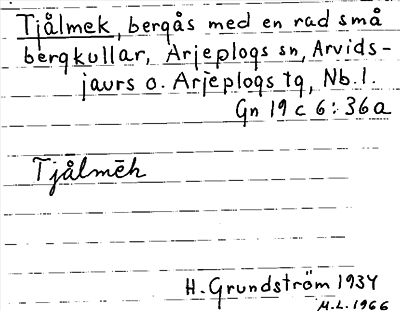 Tjålmek, bergås med en rad små
bergkullar, Arjeplogs sn, Arvids-
jaurs o. Arjeplogs tg, Nb. l.
Gn 19 c 6:36a
Tjålmēk
H. Grundström 1934
M.L. 1966